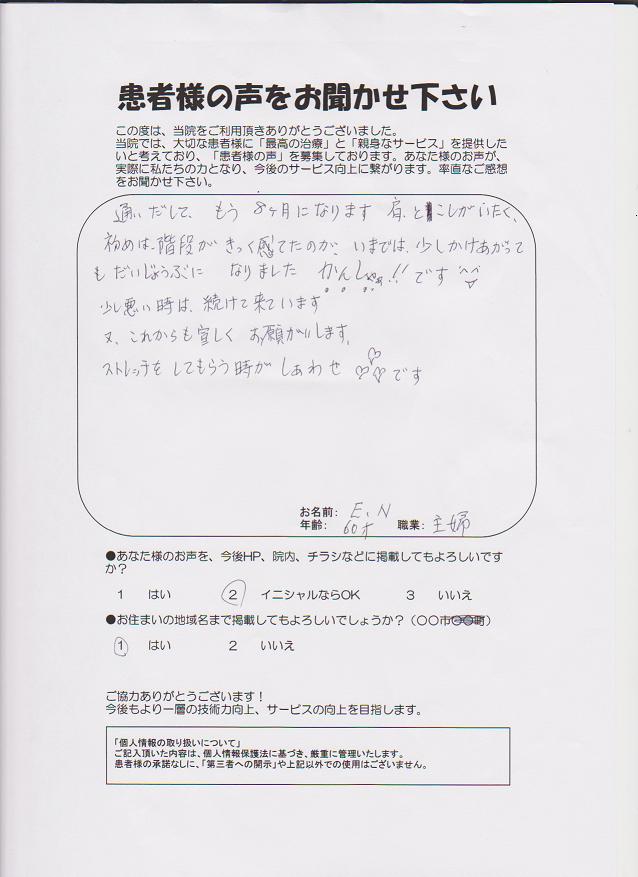 患者様の声をお聞かせ下さい
この度は、当院をご利用頂きありがとうございました。
当院では、大切な患者様に「最高の治療」と「親身なサービス」を提供した
いと考えており、「患者様の声」を募集しております。あなた様のお声が、
実際に私たちの力となり、今後のサービス向上に繋がります。率直なご感想
をお聞かせ下さい。
通いだして、もう8ヶ月になります 肩、と こしがいたく、
初めは、階段がきつく感てたのが、いまでは、少しかけあがって
もだいじょうぶに なりました かんしゃぁ!!です
少し悪い時は、続けて来ています
又、これからも宜しく お願がいします。
ストレッチをしてもらう時が しあわせ ♡♡♡です
お名前: E、N
年齢: 60才 職業: 主婦
●あなた様のお声を、今後HP、院内、チラシなどに掲載してもよろしいです
か?
1 はい 2 イニシャルならOK 3 いいえ
●お住まいの地域名まで掲載してもよろしいでしょうか?(〇〇市〇〇町)
1 はい 2 いいえ
ご協力ありがとうございます!
今後もより一層の技術力向上、サービスの向上を目指します。
「個人情報の取り扱いについて」
ご記入頂いた内容は、個人情報保護法に基づき、厳重に管理いたします。
患者様の承諾なしに、「第三者への開示」や上記以外での使用はございません。